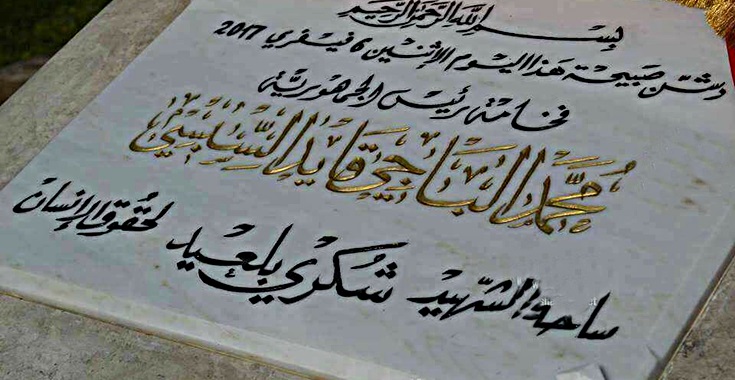 بسم الله الرحمن الرحيم
دشّن صبيحة هذا اليوم الإثنين 6 فيفري 2017
فخامة رئيس الجمهورية
محمّد الباجي قايد السّبسي
ساحة الشّهيد شُكري بلعيد لحُقوق الإنسان